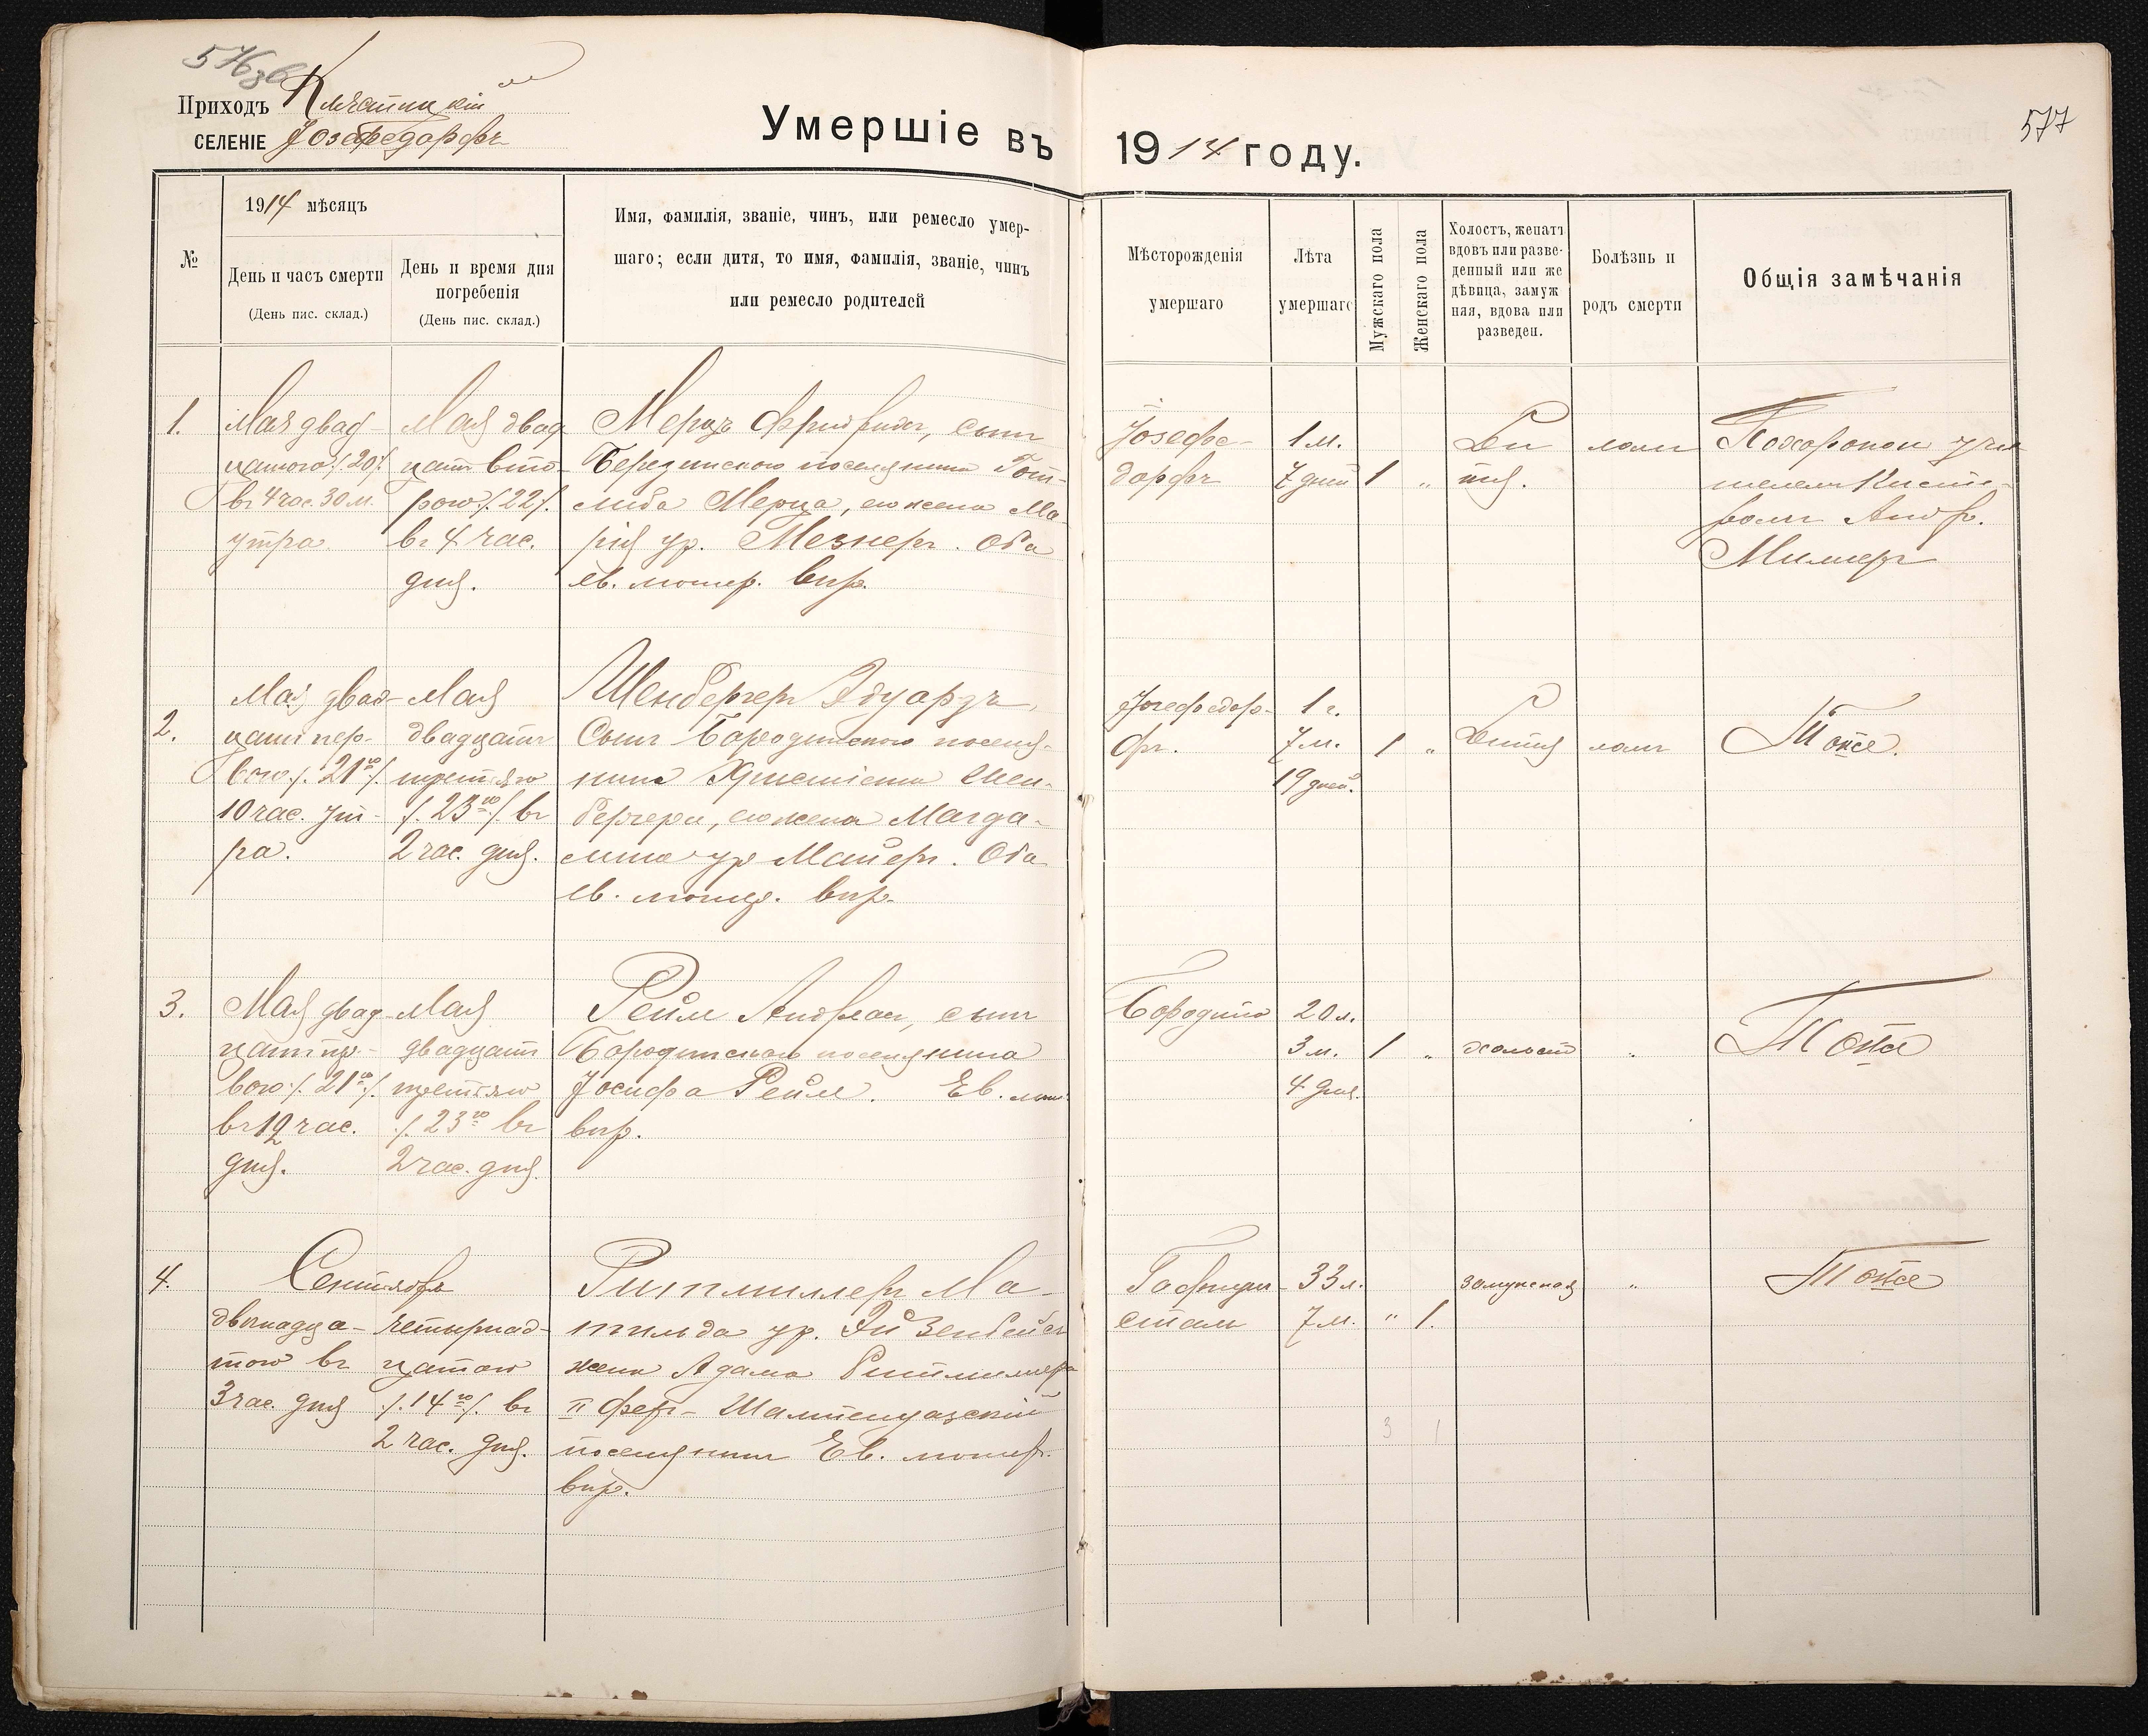 576 об
577
Приходъ Клястицкій
СЕЛЕНІЕ Іозефсдорфъ
Умершіе въ 1914 году.
№
1914 мѣсяцъ
День и часъ смерти
(День пис. склад.)
День и время дня
погребенія
(День пис. склад.)
Имя, фамилія, званіе, чинъ, или ремесло умер-
шаго; если дитя, то имя, фамилія, званіе, чинъ
или ремесло родителей
Мѣсторожденія
умершаго
Лѣта
умершаго
Мужскаго пола
Женскаго пола
Холостъ, женатъ
вдовъ или разве-
денный или же
дѣвица, замуж
няя, вдова или
разведен.
Болѣзнь и
родъ смерти
Общія замѣчанія
1.
Мая двад-
цатого /:20:/
въ 4 час. 30 м.
утра
Мая двад
цать вто-
рого /:22:/
въ 4 час.
дня.
Мерцъ Фридрихъ, сынъ
Березинскаго поселянина Гот-
либа Мерца, его жена Ма-
рія ур. Мезнеръ. Оба
ев. лютер. вѣр.
Іозефс-
дорфъ
1 м.
7 дней
1
"
Ди
тя.
Похороненъ учи
телемъ Кисте-
ромъ Андр.
Миллеръ
2.
Мая двад-
цать пер-
ваго /:21го:/
10 час. ут-
ра.
Мая
двадцать
третьяго
/:23го:/ въ
2 час. дня.
Шенбергеръ Эдуардъ,
Сынъ Бородинскаго поселя-
нина Христіана Шен-
бергера, его жена Магда-
лина ур. Майеръ. Оба
ев. лютер. вѣр.
Іозефсдор-
фъ.
1 г.
7 м.
19 дней.
1
"
Дитя
Тоже.
3.
Мая двад-
цать пер-
ваго /:21го:/
въ 12 час.
дня.
Мая
двадцать
третьяго
/:23го въ
2 час. дня.
Рейм Андреас, сынъ
Бородинскаго поселянина
Іосифа Рейм. Ев. лют.
вѣр.
Бородино
20 л.
3 м.
4 дня.
1
"
холостъ
"
Тоже
4.
Сентября
двѣнадца-
того въ
3 час. дня
четырнад-
цатого
/:14го:/ въ
2 час. дня.
Ритмиллеръ Ма-
тильда ур. Эйзенбейсъ
жена Адама Ритмиллера
II Фер-Шампенуазскій
поселянинъ Ев. лютер.
вѣр.
Гофнунг-
сталь
33 л.
7 м.
"
1.
замужняя
"
Тоже
3
1